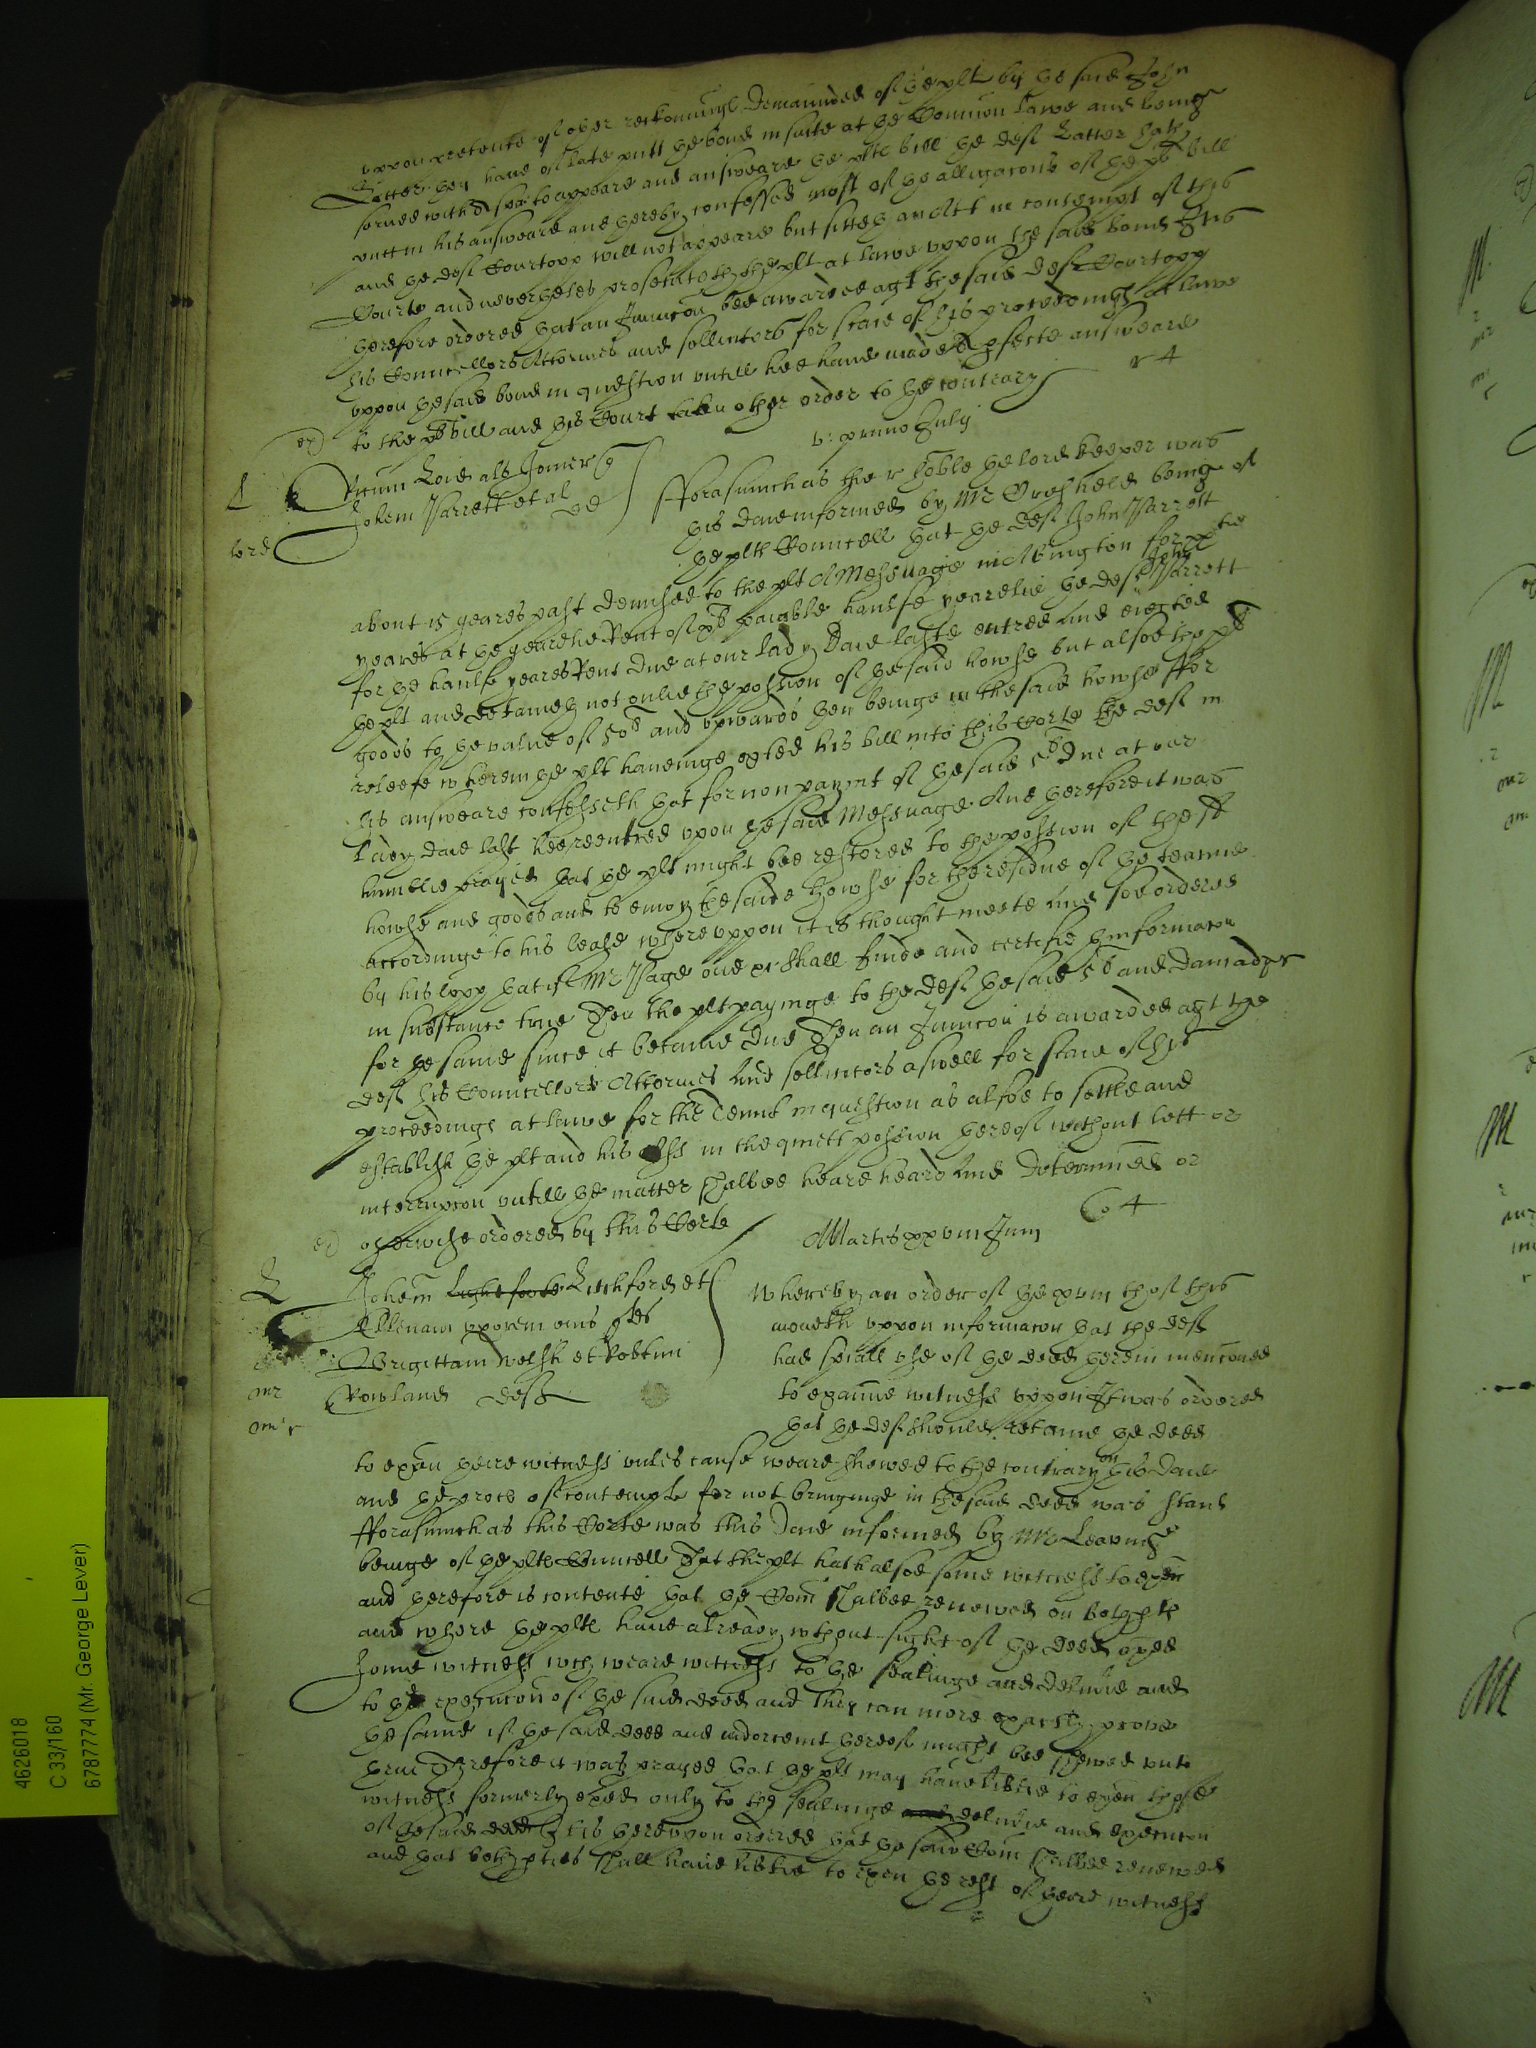 uppon pretence of other reckonings demaunded of the plt by the said John
Latter they have of late putt the bond in suite at the Common Lawe and being
served with to appeare and answeare the plts bill the deft Latter hath
putt in his answeare and thereby confessed most of the allegacons of the bill
and the deft Courtopp will not appeare but sitteth an Att in contempt of this
Courte and nevertheles prosecuteth the plt at lawe uppon the said bond It is
therefore ordered that an Iniuncon bee awarded agt the said deft Courtopp
his Councellors Attornies and sollicitors for staie of his proceedings at lawe
uppon the said bond in question untill hee have made a pfecte answeare
to the bill and this Court taken other order to the contrary
primo July
John Parrett et al
Forasmuch as the r hoble the lord keeper was
this daie informed by Mr being of
the plts Councell that the deft John Parrett
about 15 yeares past demised to the plt A Messuage in Abington for
yeares at the yearelie Rent of paiable haulfe yearelie the deft John Parrett
for the haulfe yeares Rent due at our lady Daie laste entred and eiected
the plt and detaineth not onlie the possion of the said howse but alsoe the plts
goods to the value of and upwards then beinge in the said howse For
releefe wherein the plt haveinge exhted his bill into this Corte the deft in
his answeare confesseth that for non paymt of the said due at our
Lady daie last hee reentred uppon the said Messuage And therefore it was
humblie prayed that the plt might bee restored to the possion of the sd
howse and goods and to enioy the saide howse for the residue of the tearme
accordinge to his lease whereuppon it is thought meete and soe ordered
by his lopp that if Mr Page one shall finde and certifie thinformacon
in substance true Then the plt payinge to the deft the said and damadges
for the same since it became due Then an Iniuncon is awarded agt the
deft his Councellors Attornies and sollicitors aswell for staie of his
proceedings at lawe for the Temts in question as alsoe to settle and
establish the plt and his Ass in the quiett possion thereof without lett or
interrupcon untill the matter shalbee heare heard and determined or
otherwise ordered by this Corte
Martis xxviii Junij
Johem Lightfoote Litchford et
Ellenam uxorem eius qtes
Brigittam Welsh et Robtum
Rowland defts
Whereby an order of the xviii th of this
moneth uppon informacon that the defts
had speiall use of the deed therein menconed
to examine witness uppon It was ordered
that the deft should retaine the deed
to exam theire witness unles cause weare shewed to the contrary on this daie
and the proces of contempte for not bringinge in the said deed was staied
Forasmuch as this Corte was this daie informed by Mr
beinge of the plts Councell That the plt hath alsoe some witness to exam
and therefore is contente that the Com shalbee renewed on both pts
and where the plts have already without sight of the deed exed
some witness wch weare witness to the sealinge and deliverie and
to the execucon of the said deed and they can more exactly prove
the same if the said deed and indorcemt thereof might bee shewed unto
them Therefore it was prayed that the plts may have libtie to exam those
witness formerly exed only to the sealinge and deliverie and execucon
of the said deed It is thereupon ordered that the said Com shalbee renewed
and that both pties shall have libtie to exam the rest of theire witness
4626018
C 33/160
6787774 (Mr. George Lever)